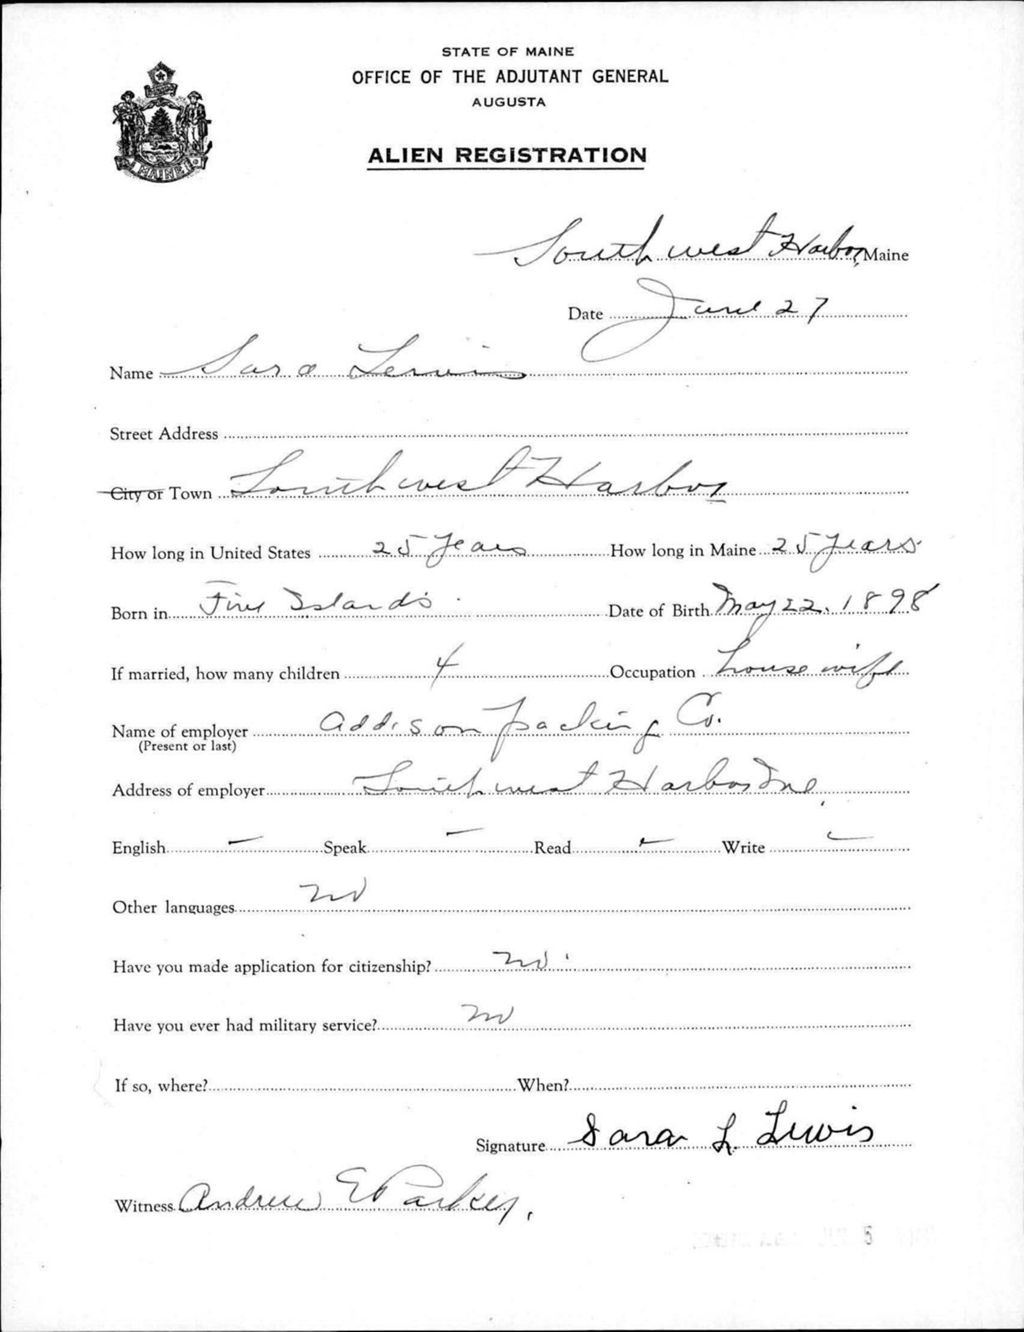 STATE OF MAINE
OFFICE OF THE ADJUTANT GENERAL
AUGUSTA
ALIEN REGISTRATION
MAINE
South west Harbor, Maine
Date June 27
Name Sara Lewis
Street Address
City or Town South west Harbor
How long in United States 25 years How long in Maine 25 years
Born in Five Islands Date of Birth May 22, 1898
If married, how many children 4 Occupation house wife
Name of employer Addison Packing Co.
(Present or last)
Address of employer South west Harbor Me.
English Speak Read Write
Other languages no
Have you made application for citizenship? no
Have you ever had military service? no
If so, where? When?
Signature Sara L. Lewis
Witness Andrew E Parker,